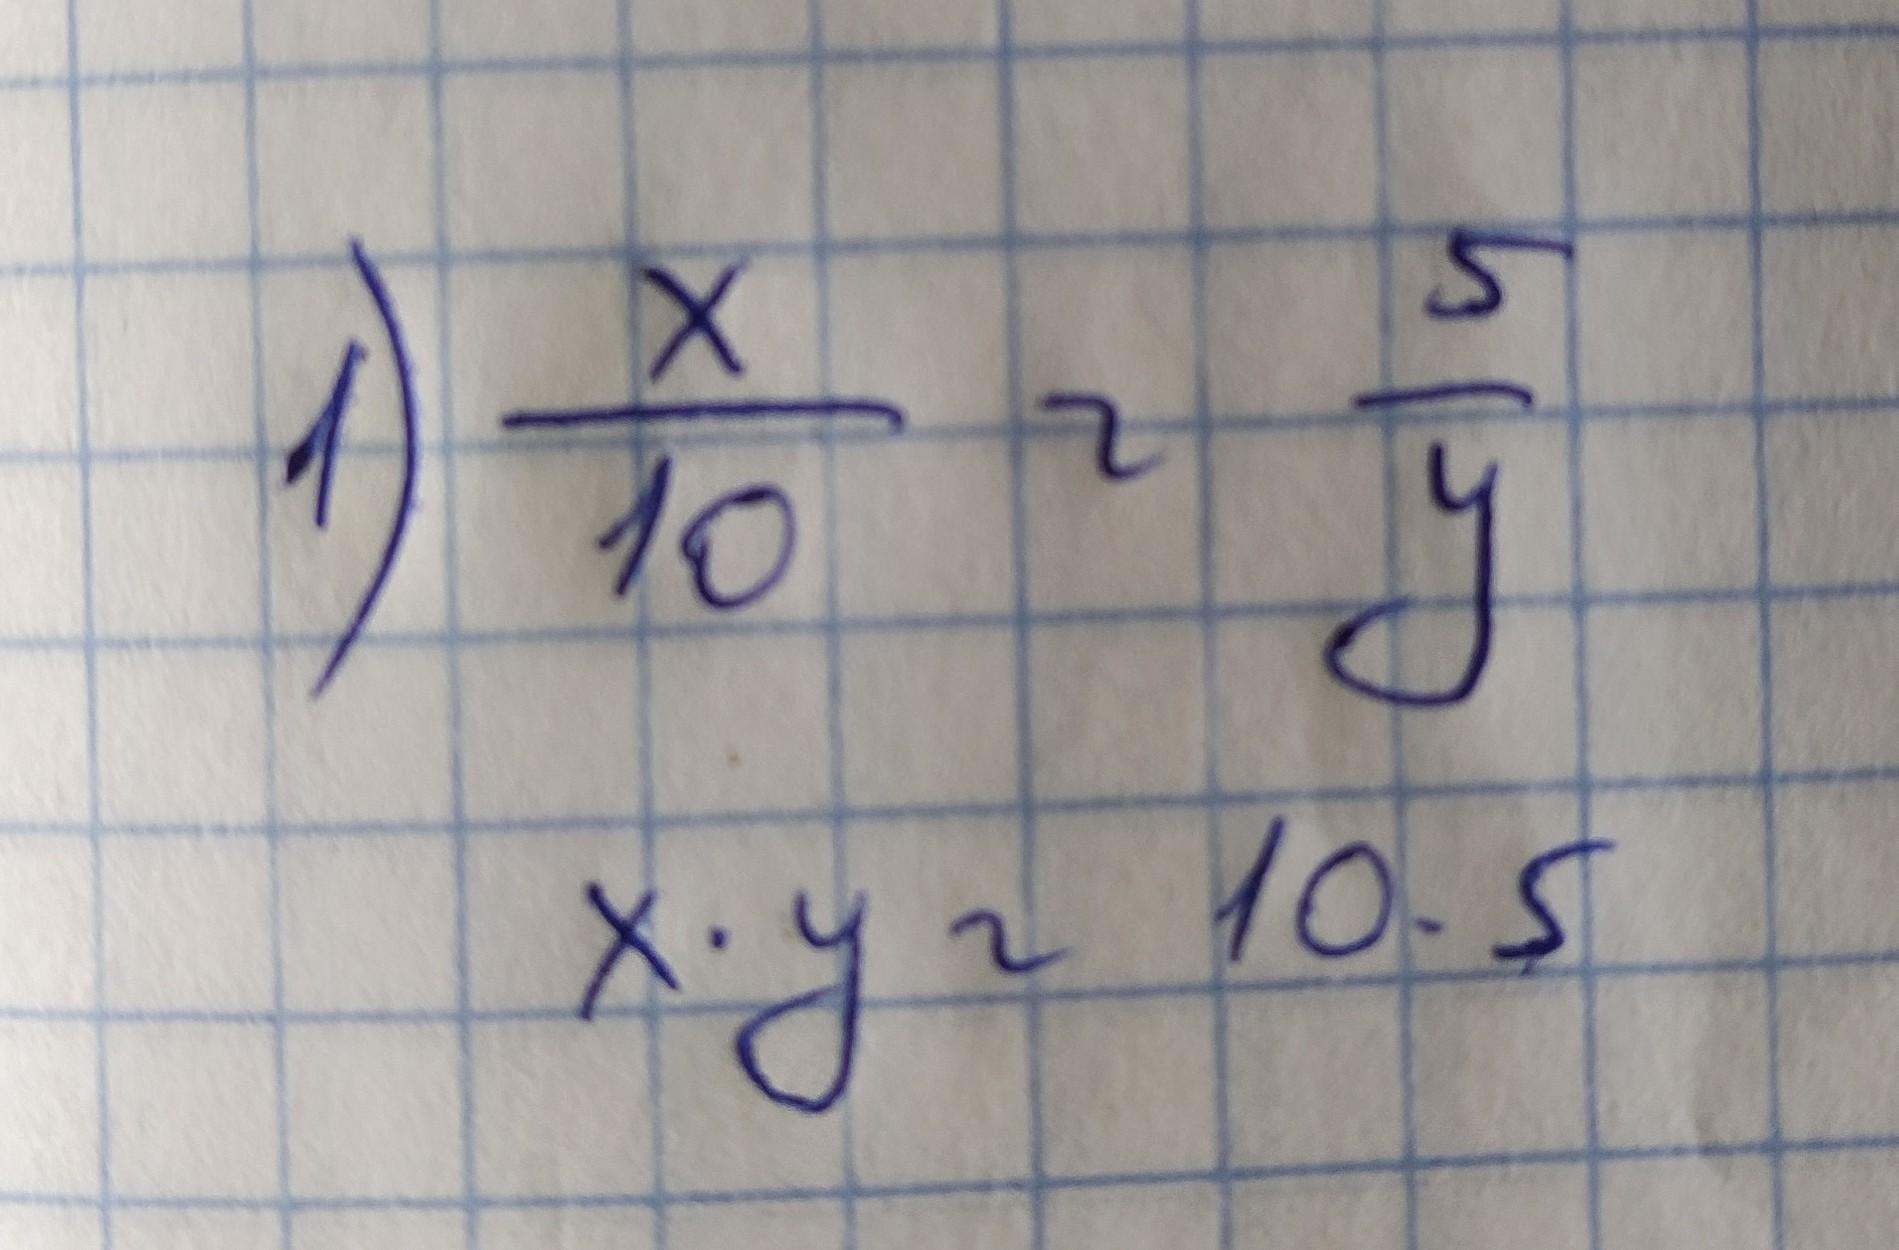 1) x/10 = 5/y
x · y = 10 · 5